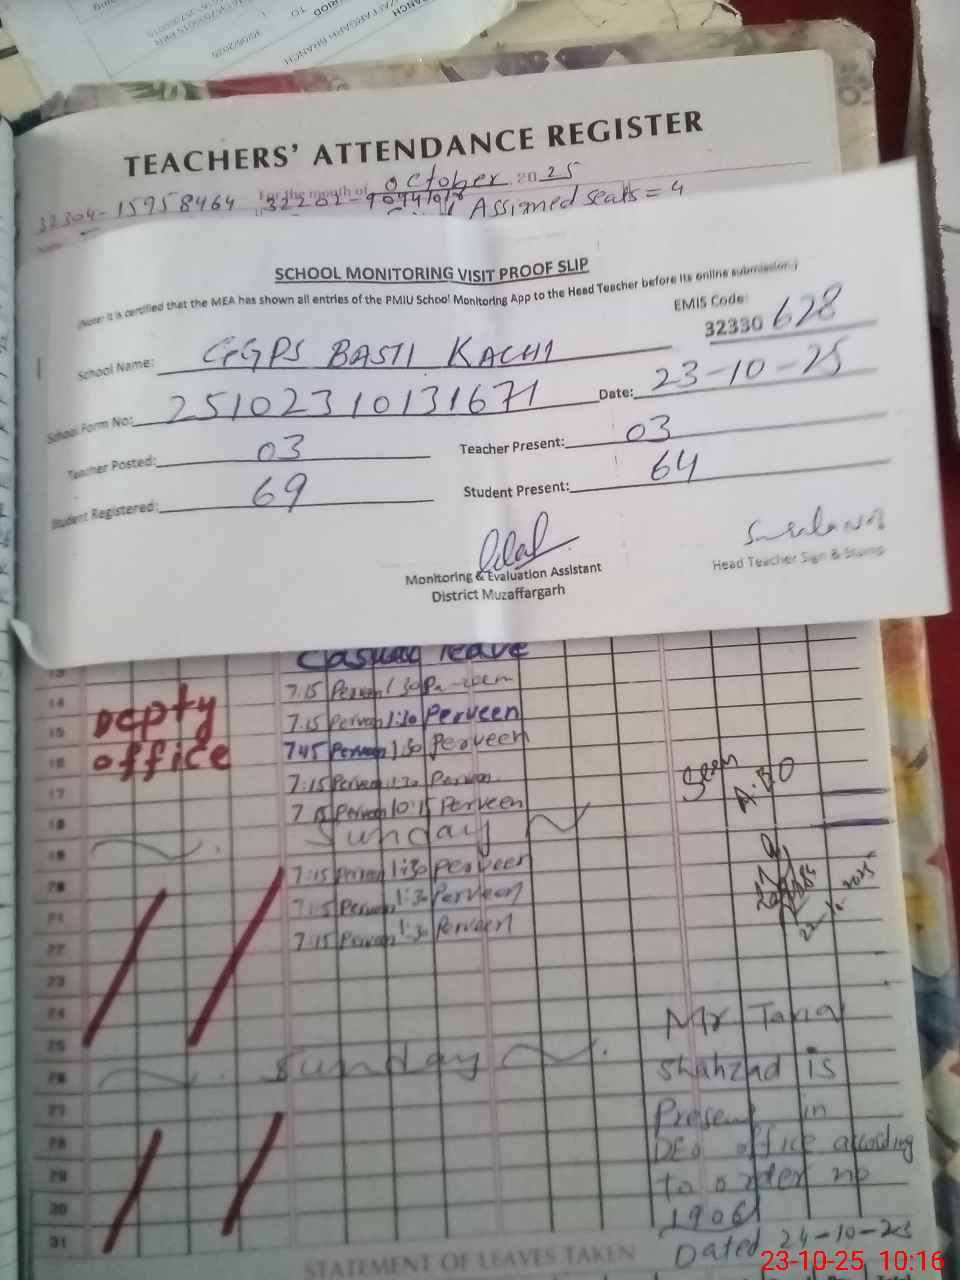 TEACHERS' ATTENDANCE REGISTER
For the month of October 2025
32304-15958464
Assigned seats = 4
SCHOOL MONITORING VISIT PROOF SLIP
(Note: It is certified that the MEA has shown all entries of the PMIU School Monitoring App to the Head Teacher before its online submission.)
EMIS Code:
32330 628
School Name: GGPS BASTI KACHI
School Form No: 25102310131671 Date: 23-10-25
Teacher Posted: 03 Teacher Present: 03
Student Registered: 69 Student Present: 64
Monitoring & Evaluation Assistant
District Muzaffargarh
Head Teacher Sign & Stamp
Casual leave
14 7:15 Perveen 1:30 Perveen
15 Depty 7:15 Perveen 1:30 Perveen
16 office 7:45 Perveen 1:30 Perveen
17 7:15 Perveen 1:30 Perveen
18 Perveen 10:15 Perveen
19 Sunday
Seen
A.E.O
20 7:15 Perveen 1:30 Perveen
21 7:15 Perveen 1:30 Perveen
22 7:15 Perveen 1:30 Perveen
23
24
25
26 Sunday
27
28
29
30
31
Mr Tariq
Shahzad is
Present in
DEO office according
to order no
1906
Dated 24-10-25
STATEMENT OF LEAVES TAKEN
23-10-25 10:16